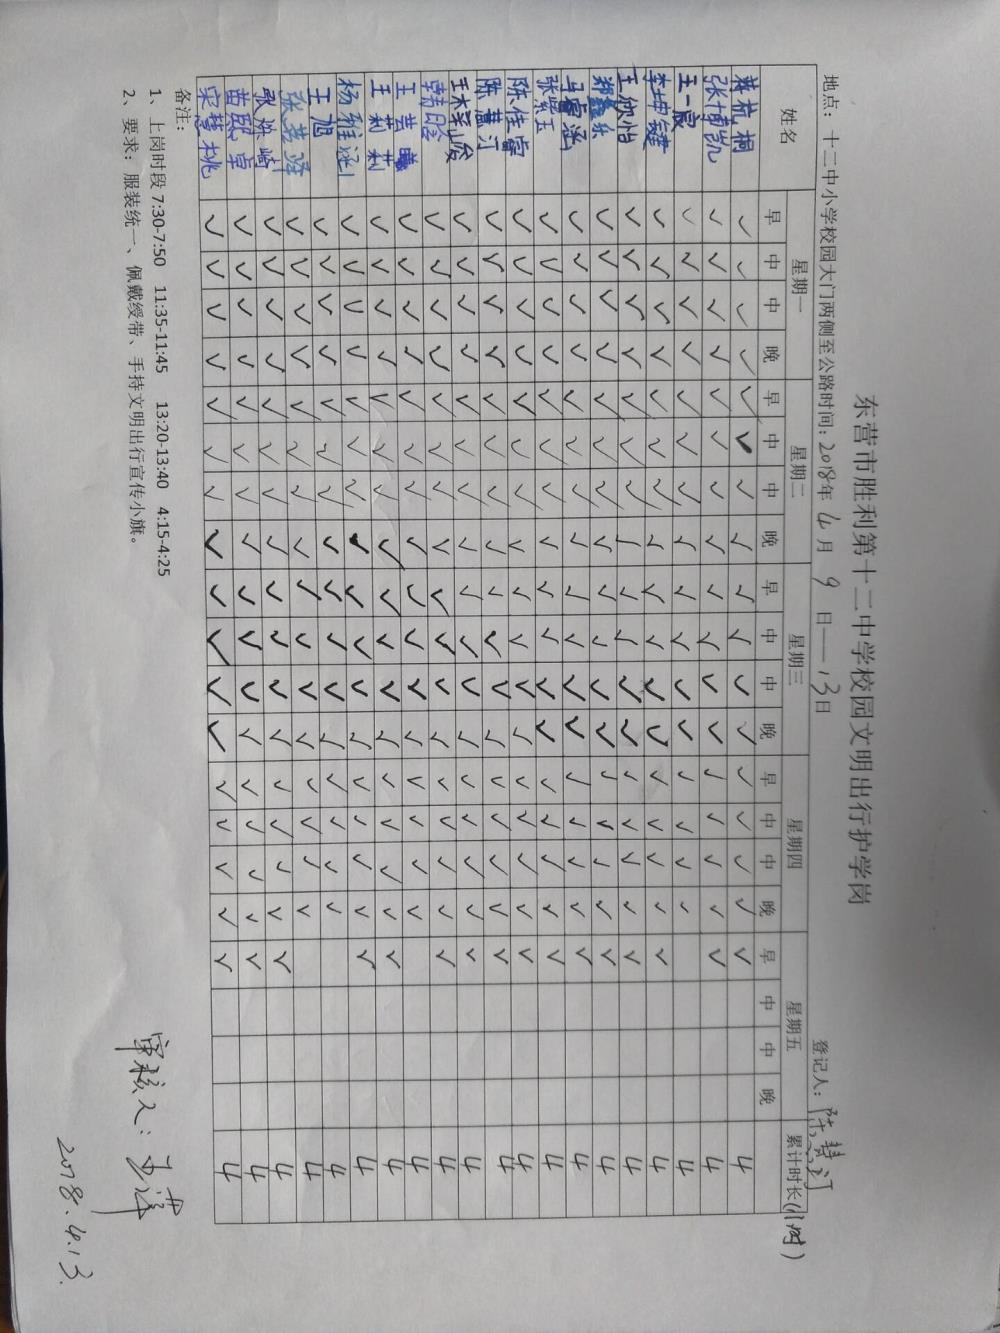 东营市胜利第十二中学校园文明出行护学岗
地点：十二中小学校园大门两侧至公路时间：2018年4月9日——13日 登记人：陈慧汀
姓名 星期一 星期二 星期三 星期四 星期五 累计时长(小时)
早 中 中 晚 早 中 中 晚 早 中 中 晚 早 中 中 晚 早 中 中 晚
蒋杭桐 ✓ ✓ ✓ ✓ ✓ ✓ ✓ ✓ ✓ ✓ ✓ ✓ ✓ ✓ ✓ ✓ ✓ 4
张博凯 ✓ ✓ ✓ ✓ ✓ ✓ ✓ ✓ ✓ ✓ ✓ ✓ ✓ ✓ ✓ ✓ ✓ 4
王一宸 ✓ ✓ ✓ ✓ ✓ ✓ ✓ ✓ ✓ ✓ ✓ ✓ ✓ ✓ ✓ ✓ 4
李坤键 ✓ ✓ ✓ ✓ ✓ ✓ ✓ ✓ ✓ ✓ ✓ ✓ ✓ ✓ ✓ ✓ ✓ 4
王欣怡 ✓ ✓ ✓ ✓ ✓ ✓ ✓ ✓ ✓ ✓ ✓ ✓ ✓ ✓ ✓ ✓ ✓ 4
郑鑫东 ✓ ✓ ✓ ✓ ✓ ✓ ✓ ✓ ✓ ✓ ✓ ✓ ✓ ✓ ✓ ✓ ✓ 4
马睿涵 ✓ ✓ ✓ ✓ ✓ ✓ ✓ ✓ ✓ ✓ ✓ ✓ ✓ ✓ ✓ ✓ ✓ 4
张紫玉 ✓ ✓ ✓ ✓ ✓ ✓ ✓ ✓ ✓ ✓ ✓ ✓ ✓ ✓ ✓ ✓ ✓ 4
陈佳睿 ✓ ✓ ✓ ✓ ✓ ✓ ✓ ✓ ✓ ✓ ✓ ✓ ✓ ✓ ✓ ✓ ✓ 4
陈慧汀 ✓ ✓ ✓ ✓ ✓ ✓ ✓ ✓ ✓ ✓ ✓ ✓ ✓ ✓ ✓ ✓ ✓ 4
王梓峻 ✓ ✓ ✓ ✓ ✓ ✓ ✓ ✓ ✓ ✓ ✓ ✓ ✓ ✓ ✓ ✓ ✓ 4
韩晗 ✓ ✓ ✓ ✓ ✓ ✓ ✓ ✓ ✓ ✓ ✓ ✓ ✓ ✓ ✓ ✓ ✓ 4
王芸曦 ✓ ✓ ✓ ✓ ✓ ✓ ✓ ✓ ✓ ✓ ✓ ✓ ✓ ✓ ✓ ✓ 4
王莉莉 ✓ ✓ ✓ ✓ ✓ ✓ ✓ ✓ ✓ ✓ ✓ ✓ ✓ ✓ ✓ ✓ ✓ 4
杨雅涵 ✓ ✓ ✓ ✓ ✓ ✓ ✓ ✓ ✓ ✓ ✓ ✓ ✓ ✓ ✓ ✓ ✓ 4
王旭 ✓ ✓ ✓ ✓ ✓ ✓ ✓ ✓ ✓ ✓ ✓ ✓ ✓ ✓ ✓ ✓ 4
张 ✓ ✓ ✓ ✓ ✓ ✓ ✓ ✓ ✓ ✓ ✓ ✓ ✓ ✓ ✓ ✓ 4
崎 ✓ ✓ ✓ ✓ ✓ ✓ ✓ ✓ ✓ ✓ ✓ ✓ ✓ ✓ ✓ ✓ ✓ 4
苗熙卓 ✓ ✓ ✓ ✓ ✓ ✓ ✓ ✓ ✓ ✓ ✓ ✓ ✓ ✓ ✓ ✓ ✓ 4
宋慧姚 ✓ ✓ ✓ ✓ ✓ ✓ ✓ ✓ ✓ ✓ ✓ ✓ ✓ ✓ ✓ ✓ ✓ 4
备注：
1、上岗时段 7:30-7:50 11:35-11:45 13:20-13:40 4:15-4:25
2、要求：服装统一、佩戴绶带、手持文明出行宣传小旗。
审核人：
2018.4.13.